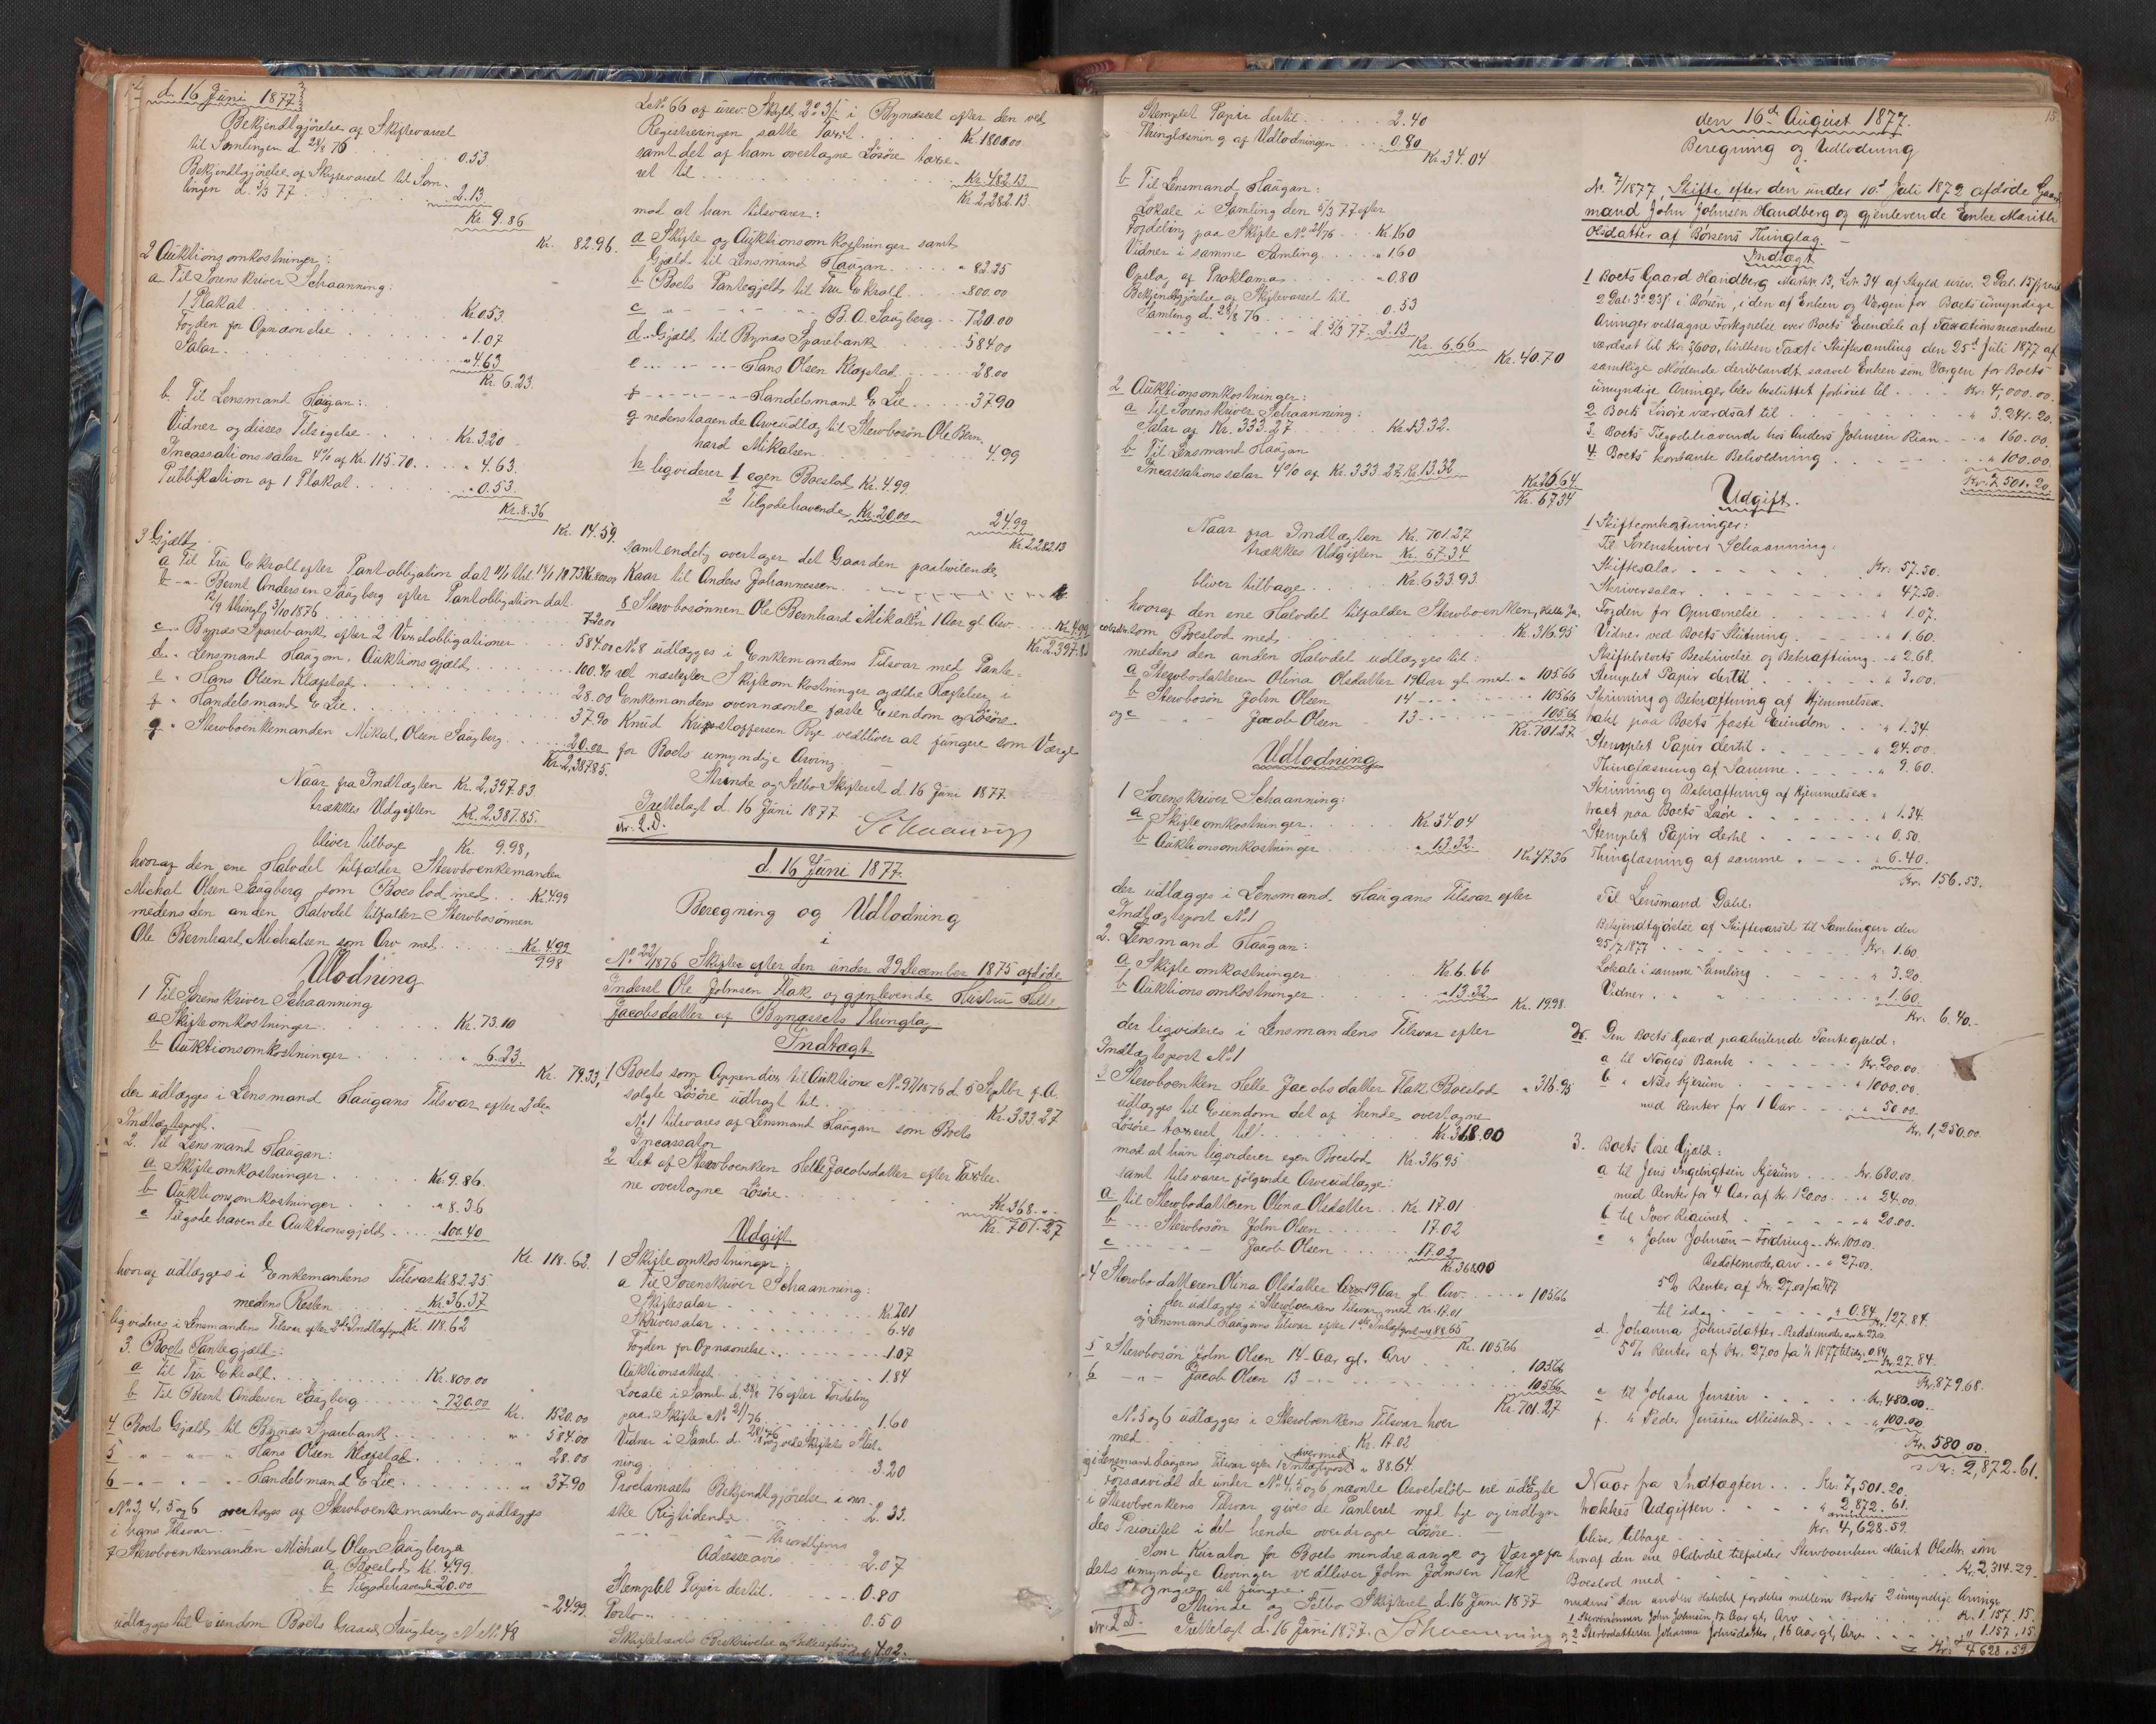 d. 16 Juni 1877
Bekjendtgjörelse af Skiftevarsel
til Samlingen d 28/8 76 . . . 0.53
Bekjendtgjörelse af Skiftevarsel til Sam-
lingen d. 5/3 77 . . . 2.13
Kr 9.86
Kr. 82.96.
2 Auktionsomkostninger:
a Til Sorenskriver Schaanning:
1 Plakat . . . Kr 0.53
Fogden for Opnævnelse . . . " 1.07
Salar . . . " 4.63
Kr. 6.23.
b. Til Lensmand Haugan:
Vidner og disses Tilsigelse . . . Kr. 3.20
Incassationssalar 4% af Kr. 115.70 . . . " 4.63.
Publikation af 1 Plakat . . . " 0.53.
Kr. 8.36
Kr. 14.59.
3 Gjæld
a Til Fru E Kroll efter Pantobligation dat 11/1 thl. 14/1 1873 Kr. 800.00
b - " - Bernt Andersen Saugberg efter Pantobligation dat.
12/9 thinglg. 3/10 1876 . . . 720.00
c - " - Bynæs Sparebank efter 2 Vexelobligationer . . . 584.00
d. " Lensmand Haugan. Auktionsgjæld . . . 100.40
e " Hans Olsen Klæpstad . . . 28.00
f " Handelsmand E Lie . . . 37.90
g " Stervboenkemanden Mikal Olsen Saugberg . . . 20.00
Kr. 2,387.85.
Naar fra Indtægten Kr. 2,397.83
trækkes Udgiften Kr. 2.387.85.
bliver tilbage Kr. 9.98,
hvoraf den ene Halvdel tilfalder Stervboenkemanden
Michal Olsen Saugberg som Boeslod med . . Kr 4.99
medens den anden Halvdel tilfalder Stervbosønnen
Ole Bernhard Michalsen som Arv med . . . Kr. 4.99
9.98
Ulodning
1 Til Sorenskriver Schaanning
a Skifteomkostninger . . . Kr. 73.10
b Auktionsomkostninger . . . " 6.23.
Kr. 79.33,
der udlægges i Lensmand Haugans Tilsvar efter 3die
Indtægtspost.
2. Til Lensmand Haugan:
a Skifteomkostninger . . . Kr. 9.86.
b Auktionsomkostninger . . . " 8.36
c Tilgodehavende Auktionsgjæld . . . " 100.40
Kr. 118.62.
hvoraf udlægges i Enkemandens Tilsvar Kr. 82.25
medens Resten . . . Kr. 36.37
ligvideres i Lensmandens Tilsvar efter 3die Indtægtspost Kr. 118.62
3. Boets Pantegjæld:
a Til Fru E Kroll . . . Kr. 800.00
b Til Bernt Andersen Saugberg . . . " 720.00
Kr. 1520.00
4 Boets Gjæld til Bynæs Sparebank . . . " 584.00
5 - " - " - " Hans Olsen Klæpstad . . . " 28.00
6 - " - " - " Handelsmand E Lie . . . " 37.90
No 3, 4, 5 og 6 overtages af Stervboenkemanden og udlægges
i hans Tilsvar.
7 Stervboenkemanden Michael Olsen Saugberg
a Boeslod Kr. 4.99.
b Tilgodehavende 20.00
" 24.99.
udlægges til Eiendom Boets Gaard Saugberg M No. 48
L No. 66 af urev. Skyld 2. 3. i Bynæsset efter den ved
Registreringen satte Taxt . . . Kr. 1800.00
samt det af ham overtagne Lösöre taxe-
ret til . . . Kr. 482.13
Kr. 2,282.13.
mod at han tilsvarer:
a Skifte og Auktionsomkostninger samt
Gjæld til Lensmand Haugan . . . " 82.25
b Boets Pantegjæld til Fru E Kroll . . . " 800.00
c " - " - " B. A. Saugberg . . 720.00
d. " Gjæld til Bynæs Sparebank . . . 584.00
e - " - " - Hans Olsen Klæpstad . . . 28.00
f - " - " - Handelsmand E Lie . . . 37.90
g nedenstaaende Arveudlæg til Stervbosøn Ole Bern-
hard Mikalsen . . . 4.99
h ligviderer 1 egen Boeslod Kr. 4.99
2 Tilgodehavende Kr. 20.00
24.99
Kr. 2,282.13
samt endelig overtager det Gaarden paahvilende
Kaar til Anders Johannessen . . .
8 Stervbosønnen Ole Bernhard Mikalsen 1 Aar gl. Arv . . . Kr. 4.99
Kr. 2.397.83
No 8 udlægges i Enkemandens Tilsvar med Pante-
ret næstefter Skifteomkostninger og ældre Hæftelser i
Enkemandens ovennævnte faste Eiendom og Lösöre.
Knud Kristoffersen Rye vedbliver at fungere som Værge
for Boets umyndige Arving.
Strinde og Selbo Skifteret d. 16 Juni 1877
Irettelagt d. 16 Juni 1877
Nr. 2. D. Schaanning
d. 16 Juni 1877.
Beregning og Udlodning
i
No 22/1876 Skiftet efter den under 29 December 1875 afdöde
Inderst Ole Johnsen Flak og gjenlevende Hustru Helle
Jacobsdatter af Bynæssets Thinglag
Indtægt
1 Boets som Appendix til Auktion No. 97/1876 d. 5 Septbr f. A.
solgte Lösöre udbragt til . . . Kr. 333.27
No 1 tilsvares af Lensmand Haugan som Boets
Incassator
2 Det af Stervboenken Helle Jacobsdatter efter Taxter-
ne overtagne Lösöre . . . Kr. 368. "
Kr. 701.27
Udgift
1 Skifteomkostninger:
a Til Sorenskriver Schaanning:
Skiftesalar . . . Kr. 7.01
Skriversalar . . . 6.40
Fogden for Opnævnelse . . . 1.07
Auktionsattest . . . 1.84
Locale i Saml. d. 28/8 76 efter Fordeling
paa Skifte No 21/76 . . . 1.60
Vidner i Saml. d. 28/8 76 og ved Skiftets Slut-
ning . . . 3.20
Proclamaets Bekjendtgjörelse i nor-
ske Rigstidende . . . 2.33.
- - - " - Throndhjems
Adresseavis . . . 2.07
Stemplet Papir dertil . . . 0.80
Porto . . . 0.50
Skiftebrevets Beskrivelse og Bekræftning . . . 4.02.
Stemplet Papir dertil . . . 2.40
Thinglæsning af Udlodningen . . . 0.80
Kr. 34.04
b Til Lensmand Haugan:
Lokale i Samling den 5/3 77 efter
Fordeling paa Skifte No. 21/76 . . . Kr. 1.60
Vidner i samme Samling . . . " 1.60
Opslag af Proklama . . . " 0.80
Bekjendtgjörelse af Skiftevarsel til
Samling d. 28/8 76 . . . 0.53
- " - " - d 5/3 77 . 2.13
Kr. 6.66
Kr. 40.70
2 Auktionsomkostninger:
a Til Sorenskriver Schaanning:
Salar af Kr. 333.27 . . . Kr. 13.32.
b Til Lensmand Haugan
Incassationssalar 4% af Kr. 333.27 Kr. 13.32
Kr. 26.64
Kr. 67.34
Naar fra Indtægten Kr. 701.27
trækkes Udgiften Kr. 67.34
bliver tilbage . . . Kr. 633.93
hvoraf den ene Halvdel tilfalder Stervboenken, Helle Ja-
cobsdtr. som Boeslod med . . . Kr. 316.95
medens den anden Halvdel udlægges til:
a Stervbodatteren Olina Olsdatter 19 Aar gl. med " 105.66
b Stervbosøn John Olsen 14 - - - 105.66
og c - " - Jacob Olsen - 13 - - - 105.66
Kr. 701.27
Udlodning
1 Sorenskriver Schaanning:
a Skifteomkostninger . . . Kr 34.04
b Auktionsomkostninger . . . " 13.32.
Kr 47.36
der udlægges i Lensmand Haugans Tilsvar efter
Indtægtspost No 1
2. Lensmand Haugan:
a Skifteomkostninger . . . Kr 6.66
b Auktionsomkostninger . . . " 13.32
Kr. 19.98.
der ligvideres i Lensmandens Tilsvar efter
Indtægtspost No 1
3 Stervboenken Helle Jacobsdatter Flak Boeslod " 316.95
udlægges til Eiendom det af hende overtagne
Lösöre taxeret til . . . Kr. 368.00
mod at hun ligviderer egen Boeslod Kr. 316.95
samt tilsvarer fölgende Arveudlægge:
a til Stervbodatteren Olina Olsdatter . . Kr. 17.01
b . . . Stervbosøn John Olsen . . . 17.02
c . . . - Jacob Olsen . . . 17.02
Kr. 368.00
4 Stervbodatteren Olina Olsdatter 19 Aar gl. Arv . . . " 105.66
der udlægges i Stervboenkens Tilsvar med Kr. 17.01
og Lensmand Haugans Tilsvar efter 1ste Indtægtspost med 88.65
Kr. 105.66
5 Stervbosøn John Olsen 14 Aar gl. Arv . . . 105.66
6 - " - Jacob Olsen 13 - . . . 105.66
Kr. 701.27
No 5 og 6 udlægges i Stervboenkens Tilsvar hver
med . . . Kr. 17.02
og i Lensmand Haugans Tilsvar efter 1 Indtægtspost hver med " 88.64.
Forsaavidt de under No 4, 5 og 6 nævnte Arvebeløb ere udlagte
i Stervboenkens Tilsvar, gives de Panteret med lige og indbyr-
des Prioritet i det hende overdragne Lösöre. -
Som Kurator for Boets mindreaarige og Værge for
dets umyndige Arvinger vedbliver John Johnsen Flak
at fungere.
Strinde og Selbo Skifteret d. 16 Juni 1877
Nr. 2 D. Irettelagt d. 16 Juni 1877. Schaanning
15.
den 16de August 1877.
Beregning og Udlodning
i
Nr. 7/1877, Skifte efter den under 10de Juli 1872 afdöde Gaard
mand John Johnsen Handberg og gjenlevende Enke Marith
Olsdatter af Börsens Thinglag.
Indtægt
1 Boets Gaard Handberg Matr. 13, Lb. 34 af Skyld urev. 2 Dal. 15 ß, revid
2 Dal. 3 23 ß i Börsen, i den af Enken og Værgen for Boets umyndige
Arvinger vedtagne Fortegnelse over Boets Eiendele af Taxationsmændene
værdsat til Kr. 3600, hvilken Taxt i Skiftesamling den 25de Juli 1877 af
samtlige Mödende deriblandt saavel Enken som Værgen for Boets
umyndige Arvinger blev besluttet forhöiet til . . . Kr. 4,000.00.
2 Boets Lösöre værdsat til . . . " 3.241.20.
3. Boets Tilgodehavende hos Anders Johnsen Rian . . . " 160.00.
4. Boets kontante Beholdning . . . " 100.00.
Kr. 7.501.20.
Udgift.
1 Skifteomkostninger:
Til Sorenskriver Schaanning:
Skiftesalar . . . Kr. 57.50.
Skriversalar . . . " 47.50.
Fogden for Opnævnelse . . . " 1.07.
Vidner ved Boets Slutning . . . " 1.60.
Skiftebrevets Beskrivelse og Bekræftning . . " 2.68.
Stemplet Papir dertil . . . " 3.00.
Skrivning og Bekræftning af Hjemmelsex-
trakt paa Boets faste Eiendom . . . " 1.34.
Stemplet Papir dertil . . . " 24.00.
Thinglæsning af Samme . . . " 9.60.
Skrivning og Bekræftning af Hjemmelsex-
tract paa Boets Lösöre . . . " 1.34.
Stemplet Papir dertil . . . " 0.50.
Thinglæsning af samme . . . " 6.40.
Kr. 156.53.
Til Lensmand Dahl:
Bekjendtgjørelse af Skiftevarsel til Samlingen den
25/7 1877 . . . Kr. 1.60.
Lokale i samme Samling . . . " 3.20.
Vidner . . . " 1.60.
Kr. 6.40.-
2. Den Boets Gaard paahvilende Pantegjæld:
a til Norges Bank . . . Kr. 200.00.
b " Nils Hjerum . . . " 1000.00.
med Renter for 1 Aar . . . " 50.00.
Kr. 1,250.00.
3. Boets löse Gjæld:
a til Jens Ingebrigtsen Hjerum . . . Kr. 680.00.
med Renter for 4 Aar af Kr. 120.00 . . . " 24.00.
b til Iver Riaunet . . . " 20.00.
c " John Johnsen - Fordring . . Kr. 100.00.
Bedstemoder, arv . . " 27.00.
5% Renter af Kr. 27.00 fra 1877
til idag . . . " 0.84. Kr. 127.84.
d. Johanna Johnsdatter - Bedstemoder, arv Kr. 27.00
5% Renter af Kr. 27.00 fra 1877 til idag " 0.84 Kr. 27.84.
Kr. 879.68.
e til Johan Jensen . . . Kr. 480.00.
f. " Peder Jenssen Meistad . . . " 100.00.
Kr. 580.00.
Kr. 2,872.61.
Naar fra Indtægten . . . Kr. 7,501.20.
trækkes Udgiften . . . " 2,872.61.
blive tilbage . . . Kr. 4,628.59.
hvoraf den ene Halvdel tilfalder Stervboenken Marit Olsdtr. som
Boeslod med . . . Kr. 2,314.29.
medens den anden Halvdel fordeles mellem Boets 2 umyndige Arvinge
1 Stervbosönnen John Johnsen, 17 Aar gl, Arv . . . Kr. 1.157.15.
og 2 Stervbodatteren Johanna Johnsdatter, 16 Aar gl, Arv . . . " 1.157.15.
Kr. 4 628.59.